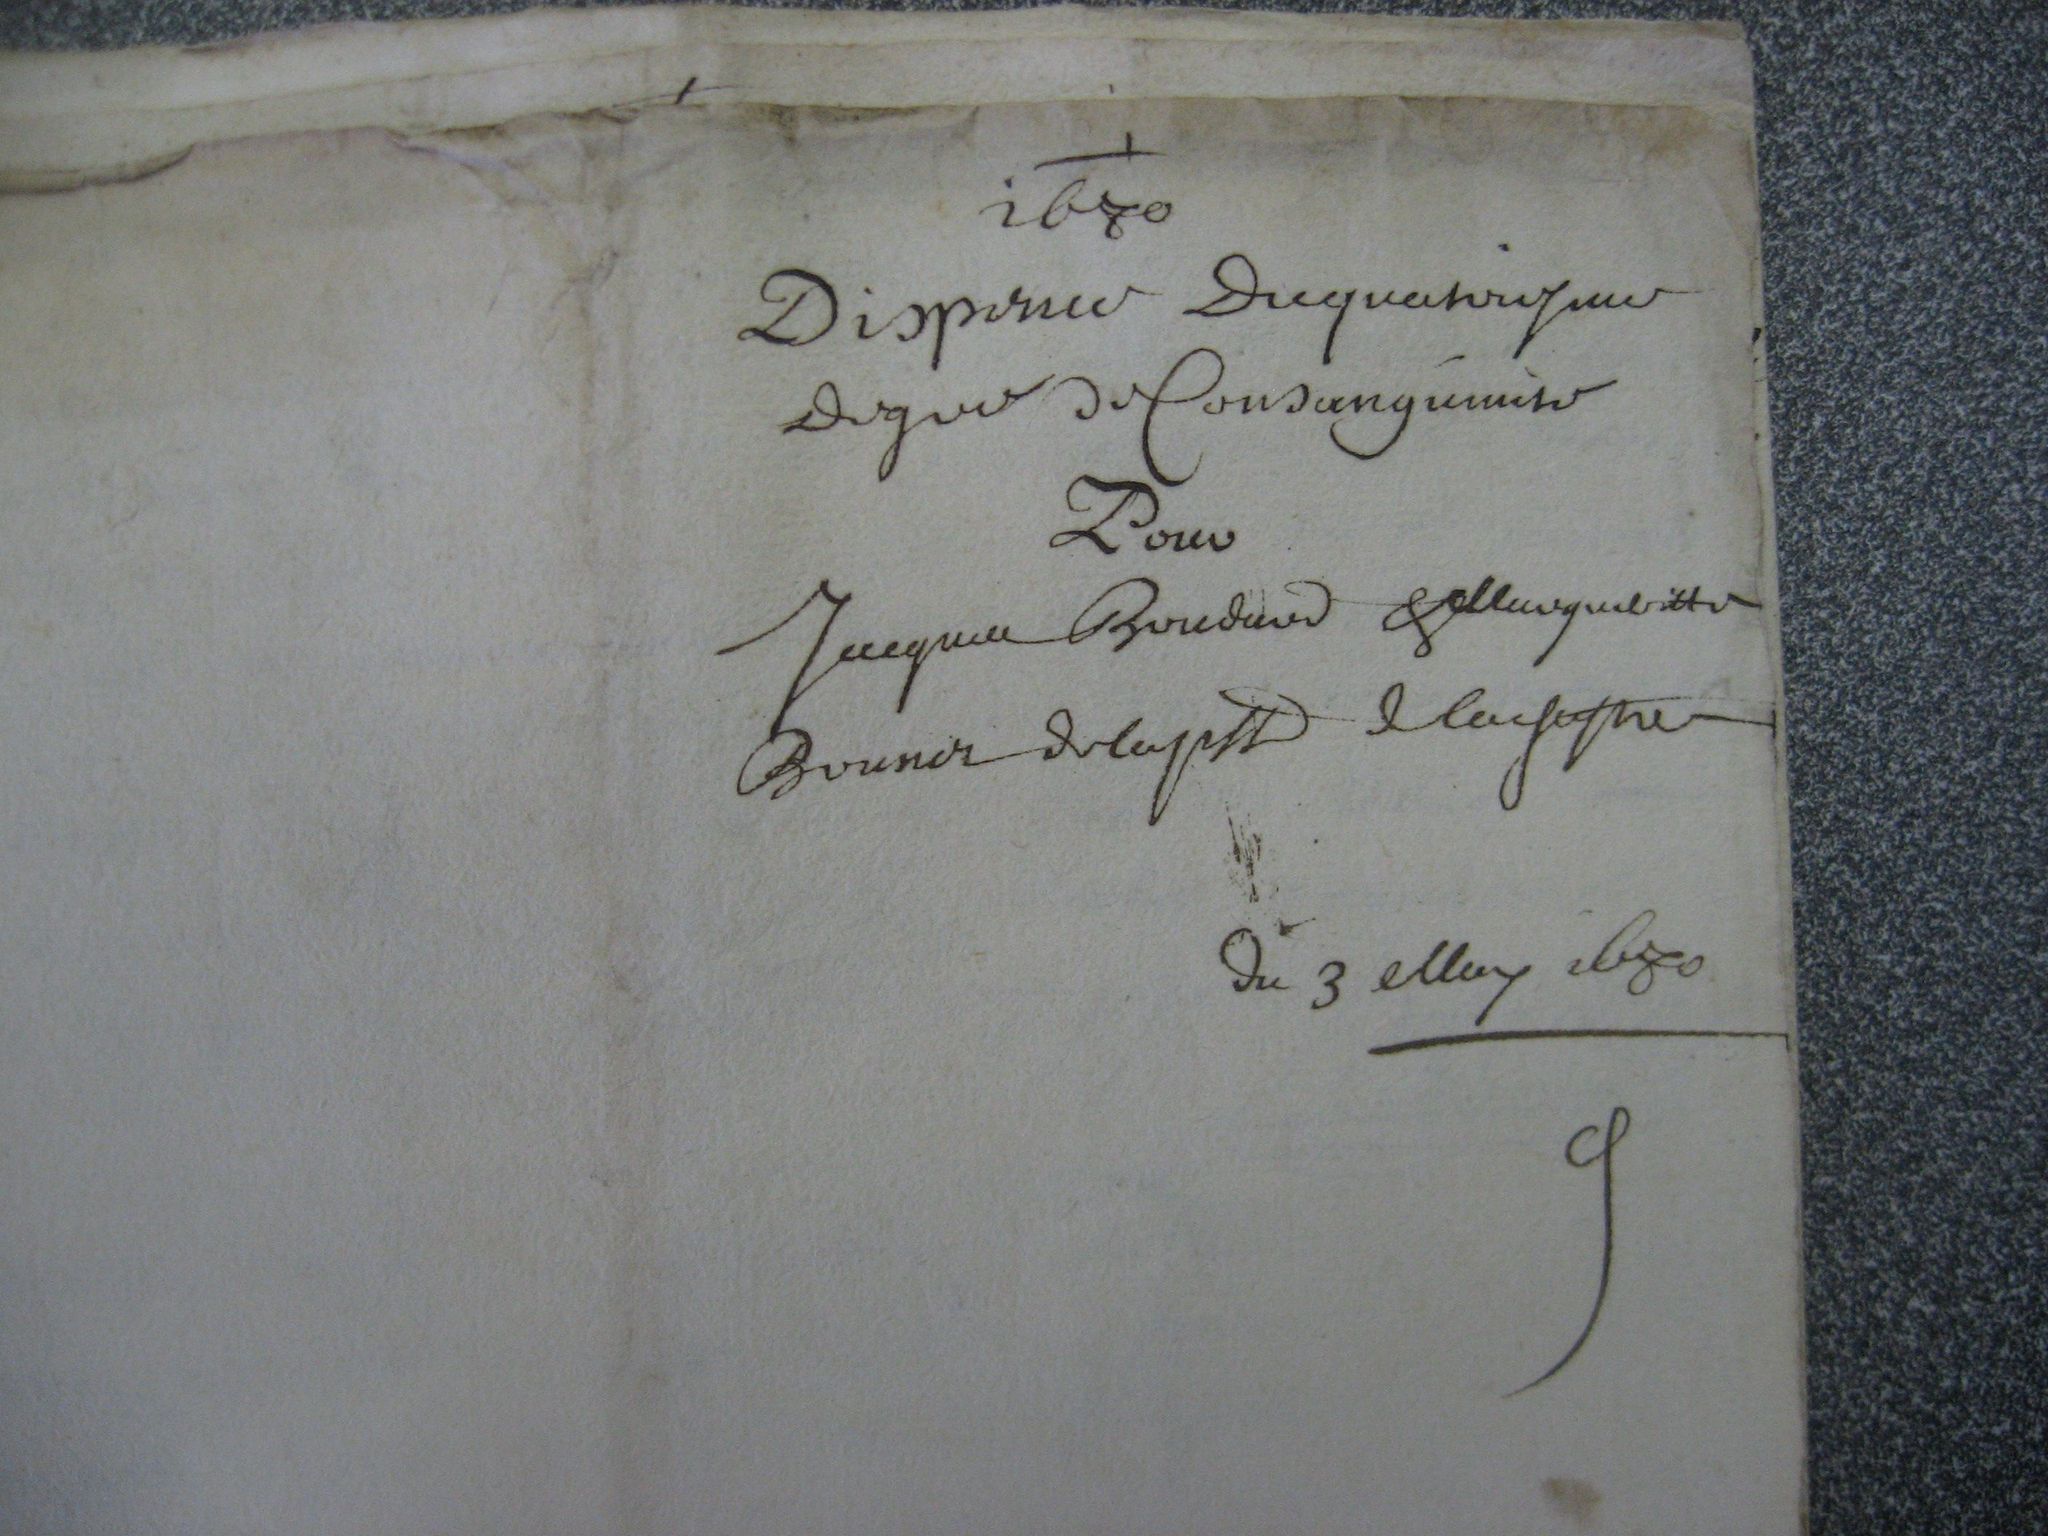 1680
Dispense Du quatriesme
degre de Consanguinite
Pour
Jacques Boudard & Margueritte
Bonner de la psse de
du 3 May 1680